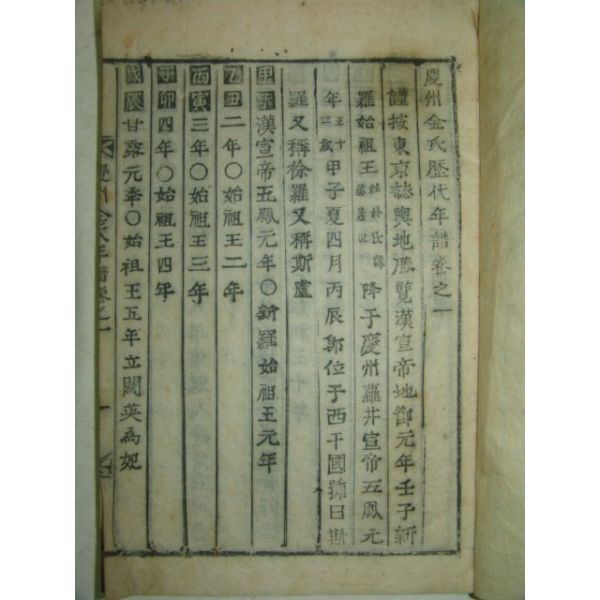 慶州金氏歷代年譜卷之一
謹按東京誌輿地勝覽漢宣帝地節元年壬子新
羅始祖王姓朴氏諱赫居世降于慶州羅井宣帝五鳳元
年王十三歲甲子夏四月丙辰卽位于西干國號曰斯
羅又稱徐羅又稱斯盧
甲子漢宣帝五鳳元年〇新羅始祖王元年
乙丑二年〇始祖王二年
丙寅三年〇始祖王三年
丁卯四年〇始祖王四年
戊辰甘露元年〇始祖王五年立閼英爲妃
慶州金氏年譜卷之一 一